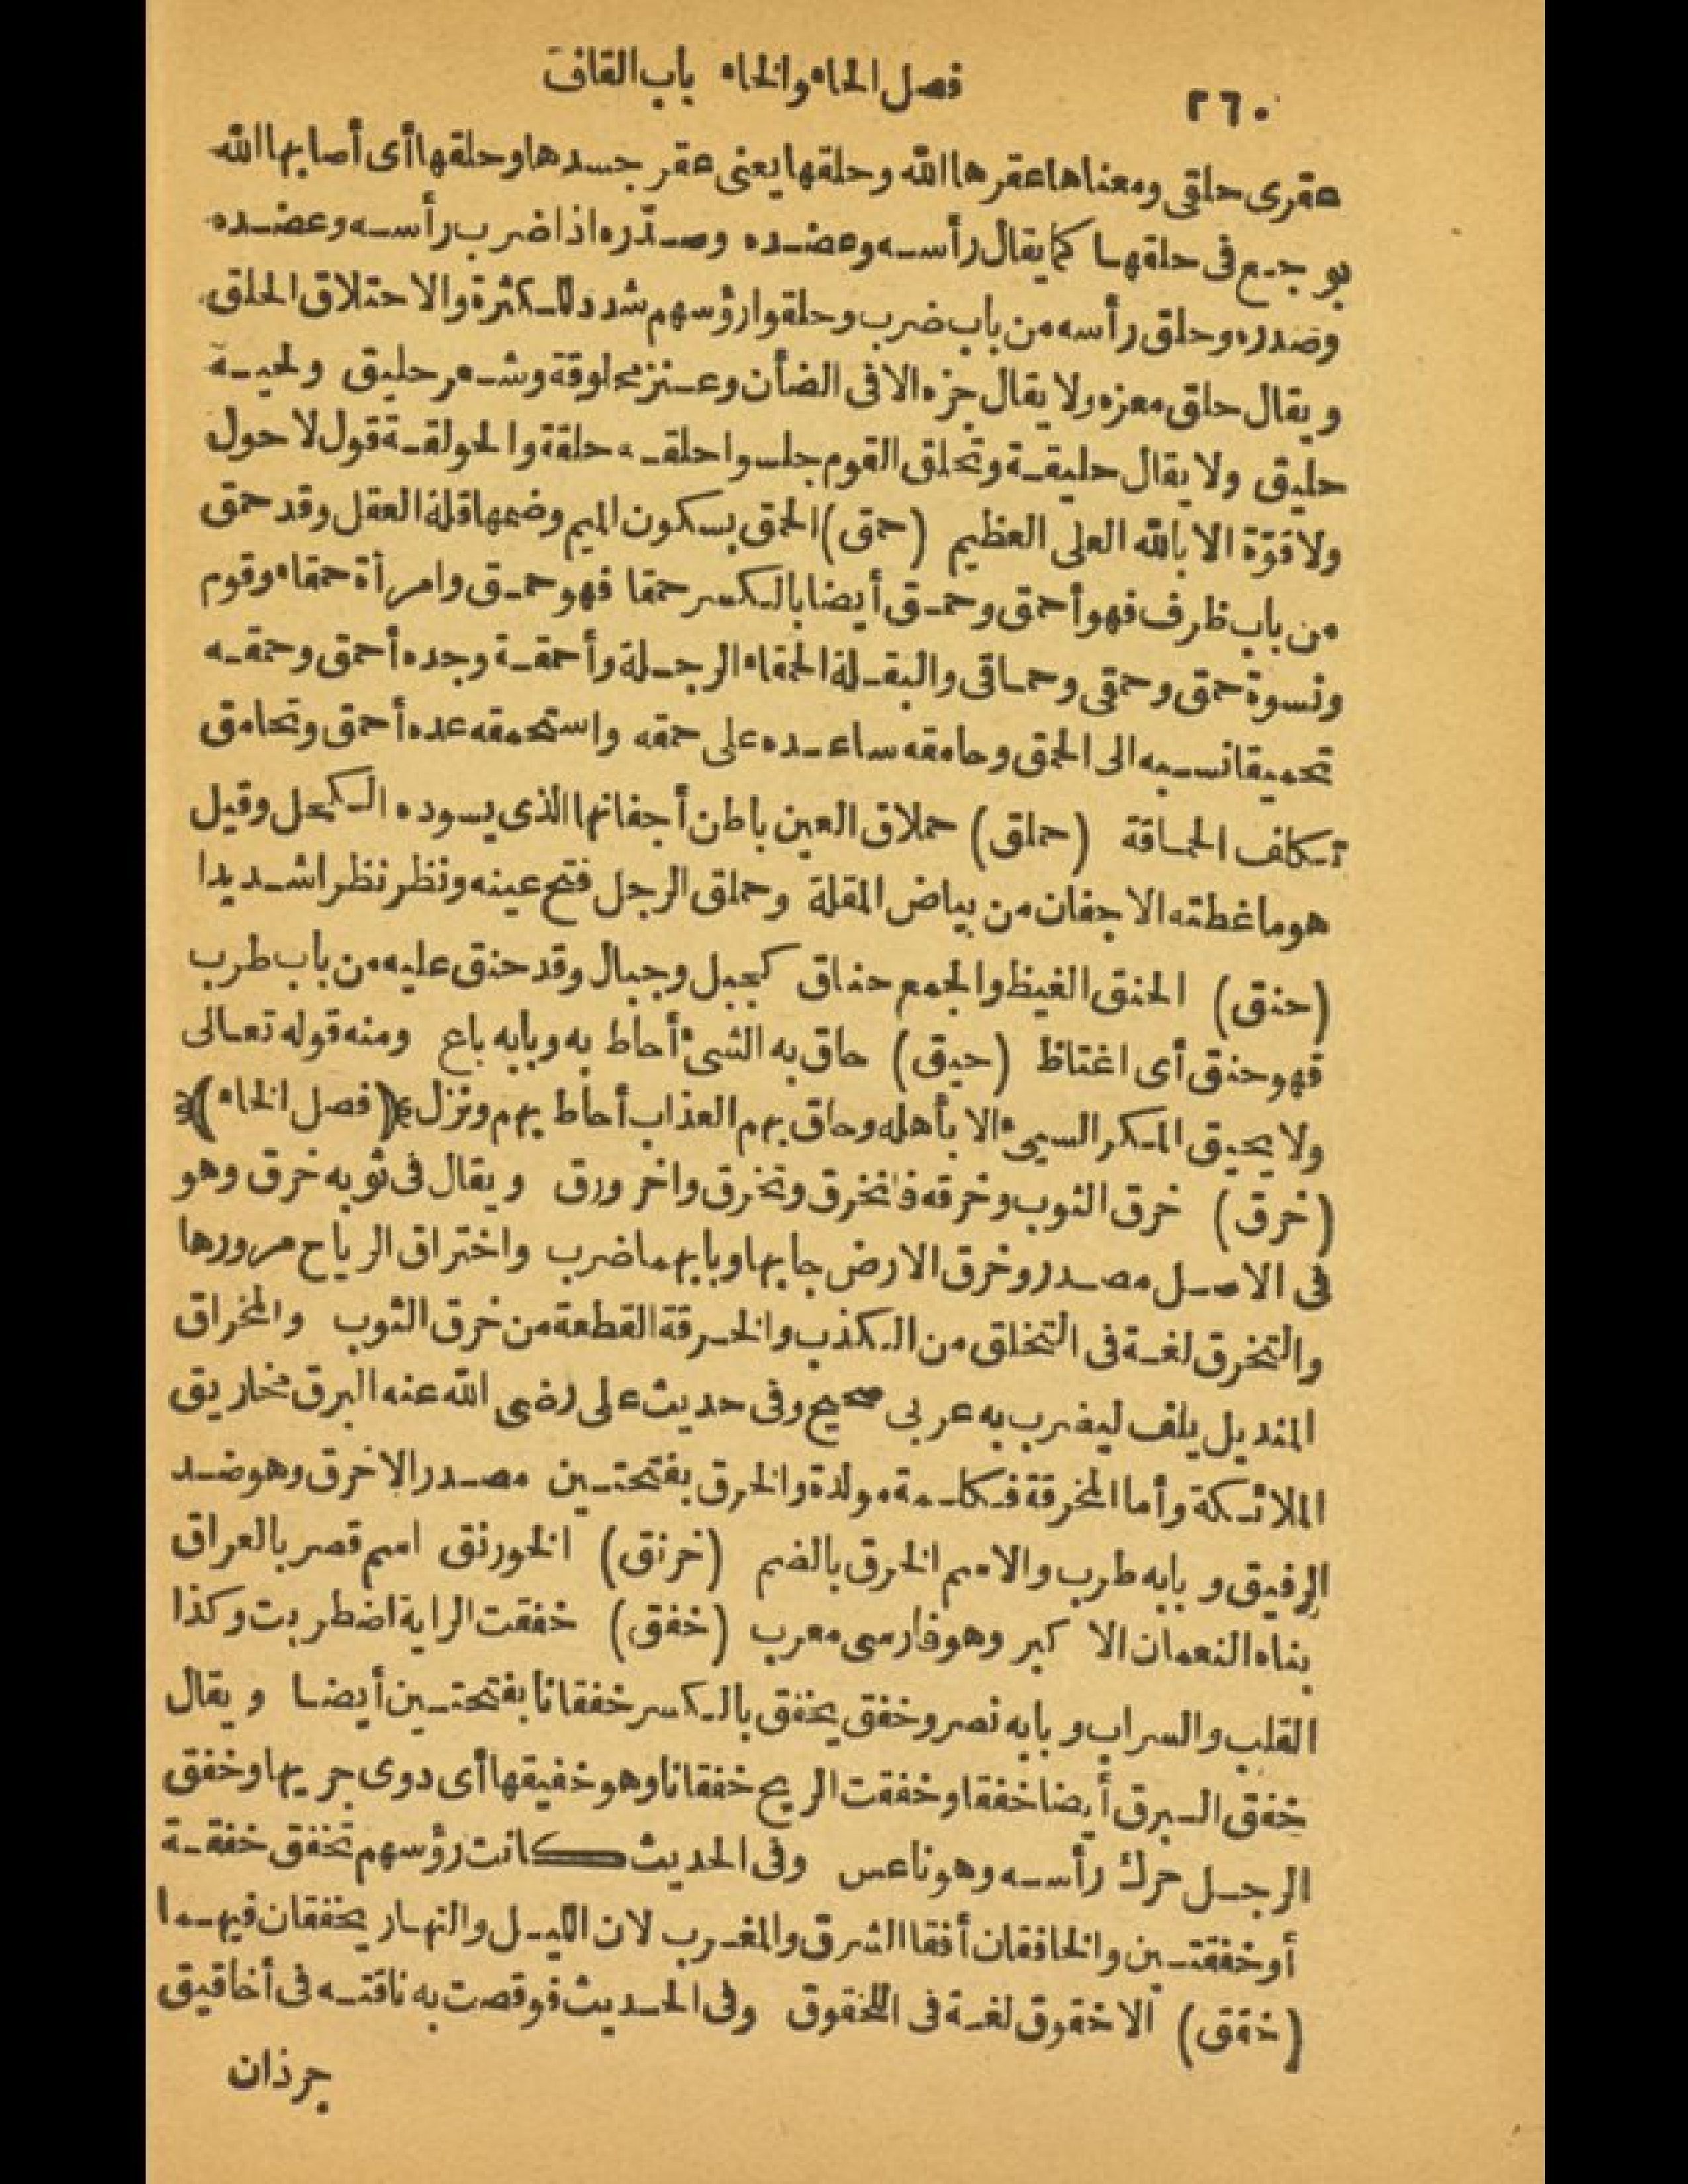 ٢٦٠ فصل الحاء والخاء باب القاف
عقرى حلقى ومعناها عقرها الله وحلقها يعنى عقر جسدها وحلقها أى أصابها الله
بوجع فى حلقها كما يقال رأسه وعضده وصدّره اذا ضرب رأسه وعضده
وصدره وحلق رأسه من باب ضرب وحلقوا رؤسهم شدد للكثرة والاحتلاق الحلق
ويقال حلق معزه ولا يقال جزه الا فى الضأن وعنز محلوقة وشعر حليق ولحية
حليق ولا يقال حليقة وتحلق القوم جلسوا حلقه حلقة والحولقة قول لا حول
ولا قوّة الا بالله العلى العظيم (حمق) الحمق بسكون الميم وضمها قلة العقل وقد حمق
من باب ظرف فهو أحمق وحمق أيضا بالكسر حمقا فهو حمق وامرأة حمقاء وقوم
ونسوة حمق وحمقى وحماقى والبقلة الحمقاء الرجلة وأحمقة وجده أحمق وحمقه
تحميقا نسبه الى الحمق وحامقه ساعده على حمقه واستحمقه عده أحمق وتحامق
تكلف الحماقة (حملق) حملاق العين باطن أجفانها الذى يسوده الكحل وقيل
هو ما غطته الاجفان من بياض المقلة وحملق الرجل فتح عينه ونظر نظرا شديدا
(حنق) الحنق الغيظ والجمع حناق كجبل وجبال وقد حنق عليه من باب طرب
فهو حنق أى اغتاظ (حيق) حاق به الشىء أحاط به وبابه باع ومنه قوله تعالى
ولا يحيق المكر السيىء الا بأهله وحاق بهم العذاب أحاط بهم ونزل ﴿(فصل الخاء)﴾
(خرق) خرق الثوب وخرقه فانخرق وتخرق واخرورق ويقال فى ثوبه خرق وهو
فى الاصل مصدر وخرق الارض جابها وبابهما ضرب واختراق الرياح مرورها
والتخرق لغة فى التخلق من الكذب والخرقة القطعة من خرق الثوب والمخراق
المنديل يلف ليضرب به عربى صحيح وفى حديث على رضى الله عنه البرق مخاريق
الملائكة وأما المخرقة فكلمة مولدة والخرق بفتحتين مصدر الاخرق وهو ضد
الرفيق وبابه طرب والاسم الخرق بالضم (خرنق) الخورنق اسم قصر بالعراق
بناه النعمان الاكبر وهو فارسى معرب (خفق) خفقت الراية اضطربت وكذا
القلب والسراب وبابه نصر وخفق يخفق بالكسر خفقانا بفتحتين أيضا ويقال
خفق البرق أيضا خفقا وخفقت الريح خفقانا وهو خفيقها أى دوى جريها وخفق
الرجل حرّك رأسه وهو ناعس وفى الحديث كانت رؤسهم تخفق خفقة
أو خفقتين والخافقان أفقا الشرق والمغرب لان الليل والنهار يخفقان فيهما
(خقق) الاخقوق لغة فى اللخقوق وفى الحديث فوقصت به ناقته فى أخاقيق
جرذان